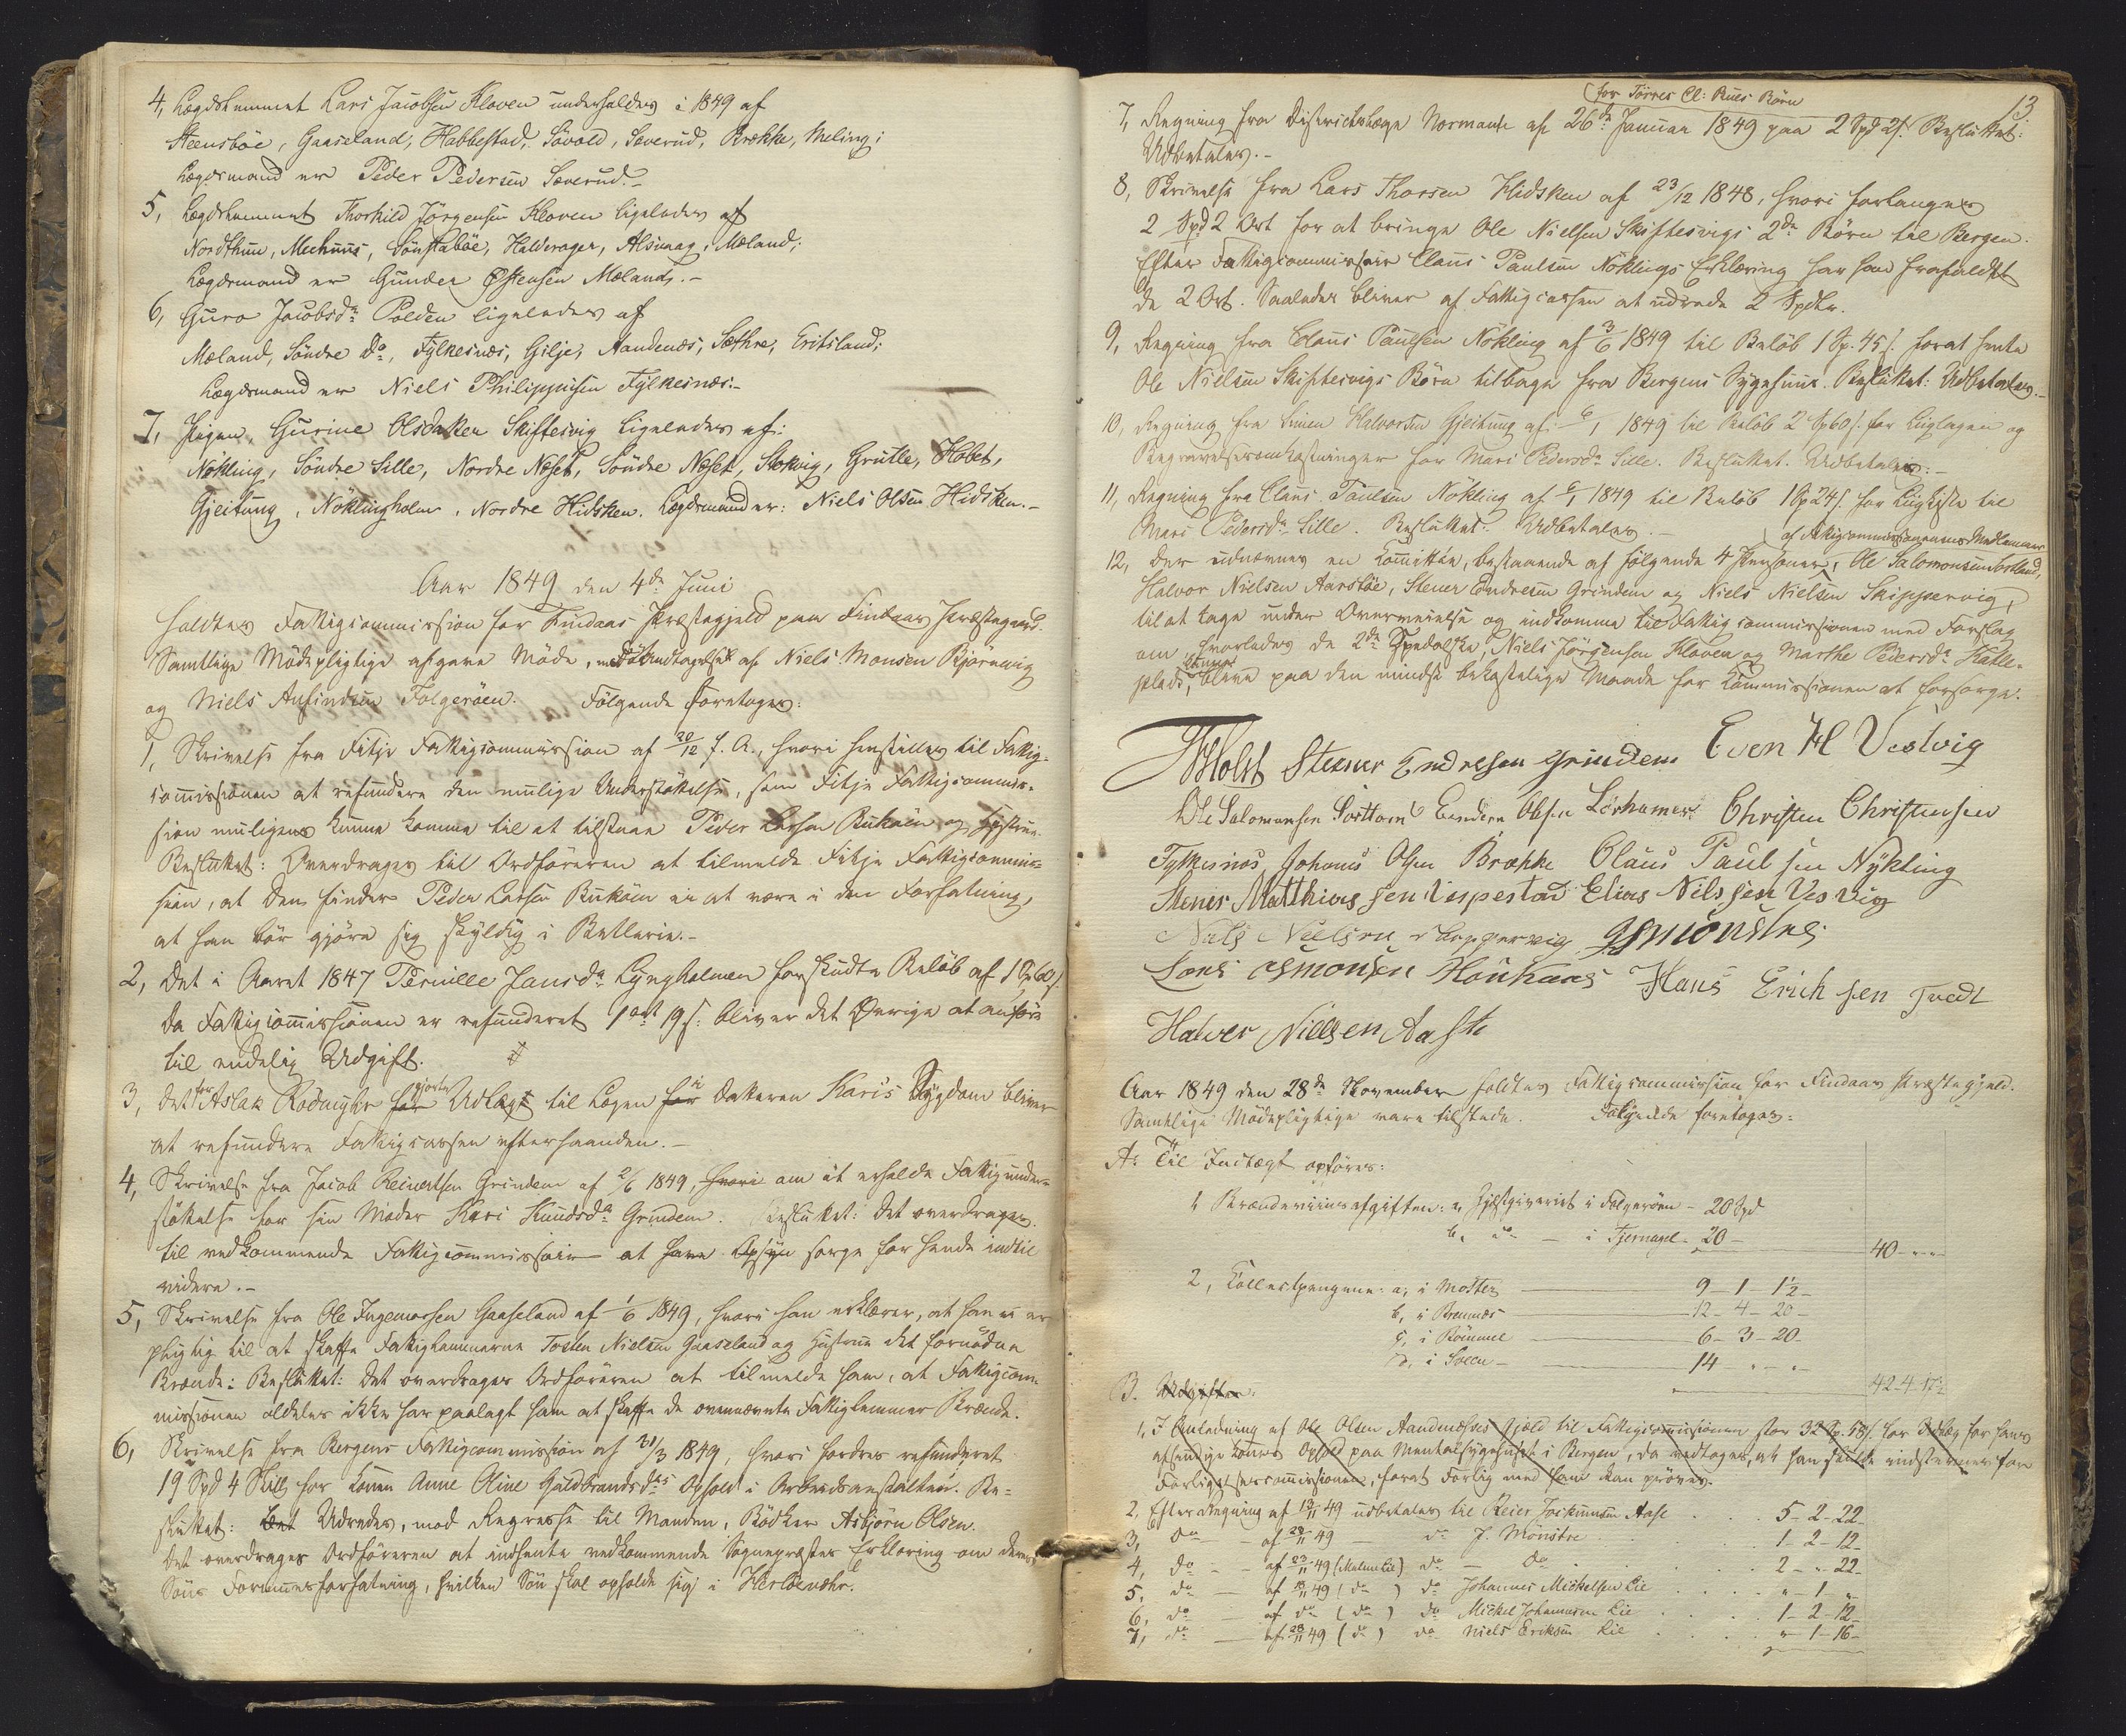 4, Lægdslemmet Lars Jacobsen Kloven underholdes i 1849 af
Steensböe, Gaaseland, Habbestad, Sövold, Severud, Brekke, Meling;
Lægdsmand er Peder Pedersen Severud.-
5, Lægdslemmet Thorkild Jörgensen Kloven ligeledes af
Nordthun, Meehuus, Sönstaböe, Halderager, Alsvaag, Mæland;
Lægdsmand er Gunder Østensen Mæland.-
6, Guro Jacobsd: Polden ligeledes af
Mæland, Söndre do, Fylkesnæs, Gilje, Aandenæs, Sæthre, Eritsland;
Lægdsmand er Niels Philippusen Fylkesnæs.-
7, Pigen, Gurine Olsdatter Skiftesvig ligeledes af:
Nökling, Söndre Lille, Nordre Næset, Söndre Næset, Stokvig, Grutle, Hobet,
Gjeitung, Nöklingholm, Nordre Hidsken. Lægdsmand er: Niels Olsen Hidsken.-
Aar 1849 den 4de Juni
holdtes Fattigcommission for Findaas Præstegjeld paa Findaas Præstegaard.
Samtlige Mödepligtige afgave Möde, med Undtagelse af Niels Monsen Bjørnevig
og Niels Anfindsen Folgeröen. Følgende foretoges:
1, Skrivelse fra Fitje Fattigcommission af 20/12 f. A., hvori henstilles til Fattig-
commissionen at refundere den mulige Understöttelse, som Fitje Fattigcommis-
sion muligens kunne komme til at tilstaae Peder Larsen Ruköen og Hustrue.
Besluttet: Overdrages til Ordföreren at tilmelde Fitje Fattigcommis-
sion, at den finder Peder Larsen Ruköen ei at være i den Forfatning,
at han bör gjöre sig skyldig i Betlerie.-
2, Det i Aaret 1847 Pernille Jansd: Lyngholmen forskudte Belöb af 1 Sp 60 s.
da Fattigcommissionen er refunderet 1 ort 19 s. bliver det Øvrige at anföre
til endelig Udgift.
3, Det for Aslak Rodmyhr gjorte Udlæg til Lægen i Datteren Karis Sygdom bliver
at refundere Fattigcassen efterhaanden.-
4, Skrivelse fra Jacob Reinertsen Grindem af 2/6 1849, hvori om at erholde Fattigunder-
støttelse for sin Moder Kari Knudsd: Grindem. Besluttet: Det overdrages
til vedkommende Fattigcommissair at have Opsyn sorge for hende indtil
videre.-
5, Skrivelse fra Ole Ingemorsen Gaaseland af 1/6 1849, hvori han erklærer, at han ei er
pligtig til at skaffe Fattiglemmerne Tosten Nielsen Gaaseland og Hustrue det fornödne
Brænde: Besluttet: Det overdrages Ordföreren at tilmelde ham, at Fattigcom-
missionen aldeles ikke har paalagt ham at skaffe de ovennævnte Fattiglemmer Brænde.
6, Skrivelse fra Bergens Fattigcommission af 31/3 1849, hvori fordres refunderet
19 Spd 4 Skill for Konen Anne Oline Guldbrandsdrs Ophold i Arbeidsanstalten. Be-
sluttet: Det Udredes, mod Regresse til Manden, Bödker Asbjörn Olsen.
Det overdrages Ordföreren at indhente vedkommende Sognepræstes Erklæring om deres
Söns Formuesforfatning, hvilken Sön skal opholde sig i Herlöevæhr.
13
for Törres Cl: Rues Börn
7, Regning fra Districtslæge Normann af 26de Januar 1849 paa 2 Spd 2 s. Besluttet:
Udbetales.-
8, Skrivelse fra Lars Thorsen Hidsken af 23/12 1848, hvori forlanges
2 Spd 2 Ort for at bringe Ole Nielsen Skiftesvigs 2de Börn til Bergen.
Efter Fattigcommissair Claus Paulsen Nöklings Erklæring har han frafaldet
de 2 Ort. Saaledes bliver af Fattigcassen at udrede 2 Spdlr.
9, Regning fra Claus Paulsen Nökling af 3/6 1849 til Belöb 1 Sp. 45 s. for at hente
Ole Nielsen Skiftesvigs Börn tilbage fra Bergens Sygehuus. Besluttet: Udbetales.-
10, Regning fra Simen Halvorsen Gjeitung af 6/1 1849 til Belöb 2 Sp 60 s. for Liiglagen og
Begravelsesomkostninger for Mari Pedersd: Lille. Besluttet. Udbetales:-
11, Regning fra Claus Paulsen Nökling af 6/1 1849 til Belöb 1 Sp 24 s. for Liigkiste til
Mari Pedersd: Lille. Besluttet: Udbetales.-
af Fattigcommissionens Medlemmer
12, Der udnævnes en Committee, bestaaende af følgende 4 Personer, Ole Salomonsen Sortland,
Halvor Nielsen Aarsböe, Stener Endresen Grindem og Niels Nielsen Skippervig,
til at tage under Overveielse og indkomme til Fattigcommissionen med Forslag
om, hvorledes de 2de Spedalske, Niels Jörgensen Kloven og Marthe Pedersd: Katle-
plads, kunne blive paa den mindst bekostelige Maade for Commissionen at forsörge.
Holst Steener Endresen Grindem Even H Vestvig
Ole Salomonsen Sortland Endre Olsen Lerhamer Christen Christensen
Fylkesnes Johannes Olsen Brække Claus Paulsen Nykling
Stener Matthiassen Vespestad Elias Nilssen Vesvig
Niels Nielsen Skippervig J Mönstre
Lars Asmonsen Houkaas Hans Erichsen Tvedt
Halver Nillsen Aasbø
Aar 1849 den 28de November holdtes Fattigcommission for Findaas Præstegjeld.
Samtlige Mödepligtige vare tilstede. Følgende foretoges:
A: Til Indtægt opföres:
1, Brændeviinsafgiften: a, Gjæstgiveriet i Folgeröen - 20 Spd
b, do - i Tjernagel - 20 -
40 - " - "
2, Tolvestpengene: a, i Moster 9 - 1 - 1½ -
b, i Bremnæs 12 - 4 - 20 -
c, i Römmel 6 - 3 - 20 -
d, i Sveen - 14 - " - "
42-4-17½
B. Udgifter:
1, I Anledning af Ole Olsen Aandenæses Gjeld til Fattigcommissionen stor 32 Sp. 18 s. for Udlæg for hans
afsindige Kones Ophold paa Mentalsygehuset i Bergen, da vedtoges, at han skulde indstevnes for
Forligelsescommissionen, forat Forlig med ham kan pröves.
2, Efter Regning af 19/11 49 udbetales til Reier Joekumsen Aase 5 - 2 - 22 -
3, do - af 28/11 49 - do J. Mönstre 1 - 2 - 12 -
4, do - af 23/11 49 (Malene Lie) do - do 2 - " - 22 -
5, do - af 19/11 49 (do) do Johannes Mickelsen Lie " - 1 - "
6, do - af do (do) do Mickel Johannesen Lie 1 - 2 - 12 -
7, do - af 28/11 49 (do) do Niels Eriksen Lie " - 1 - 16 -